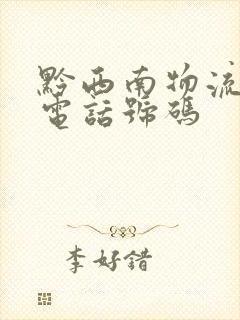 黔西南物流
電話號碼
李好錯